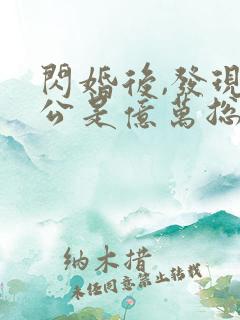 閃婚後,發現
公是億萬總
納木措
未經同意禁止轉載